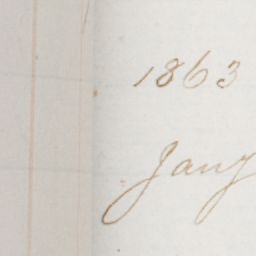 1863
Jany